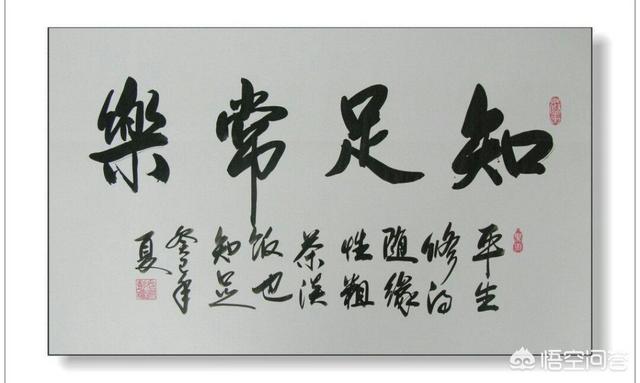 知足常樂
平生
修得
随缘
性粗
茶淡
饭也
知足
癸巳年
夏
悟空问答